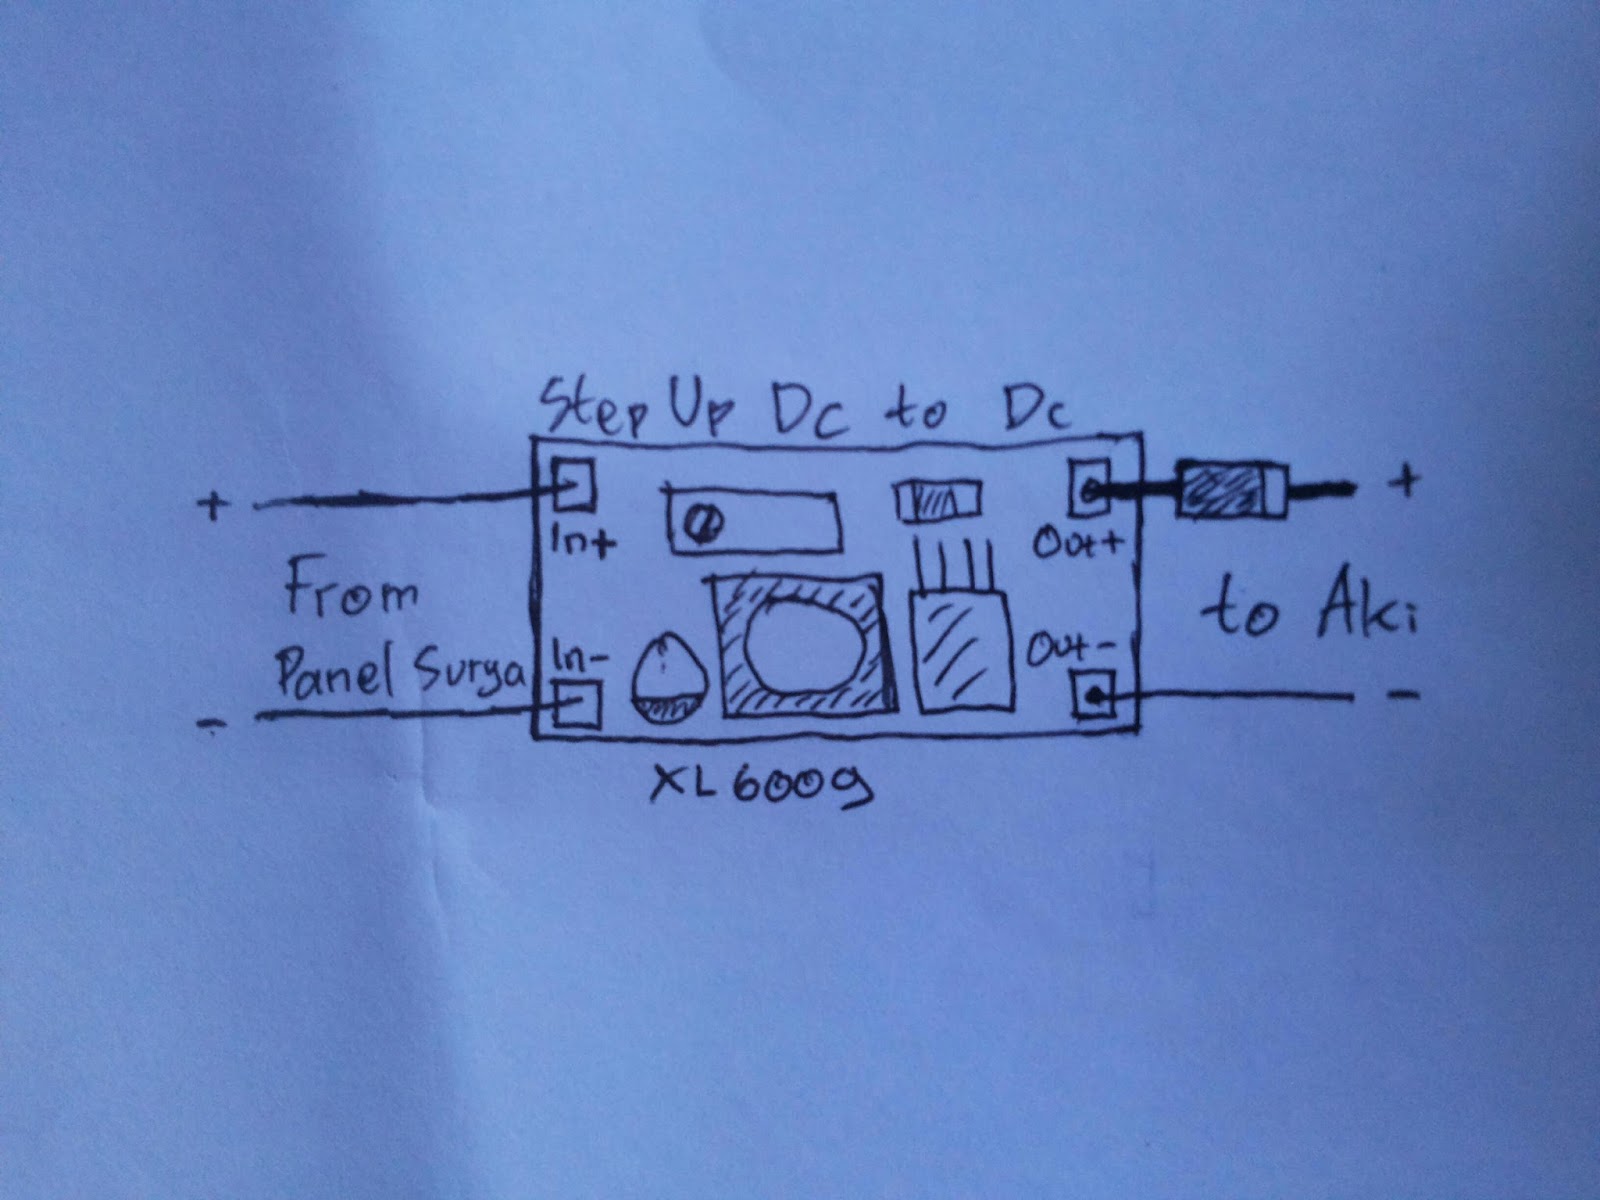 Step Up Dc to Dc
+
In+
Out+
+
From
Panel Surya
to Aki
In-
Out-
-
-
XL6009